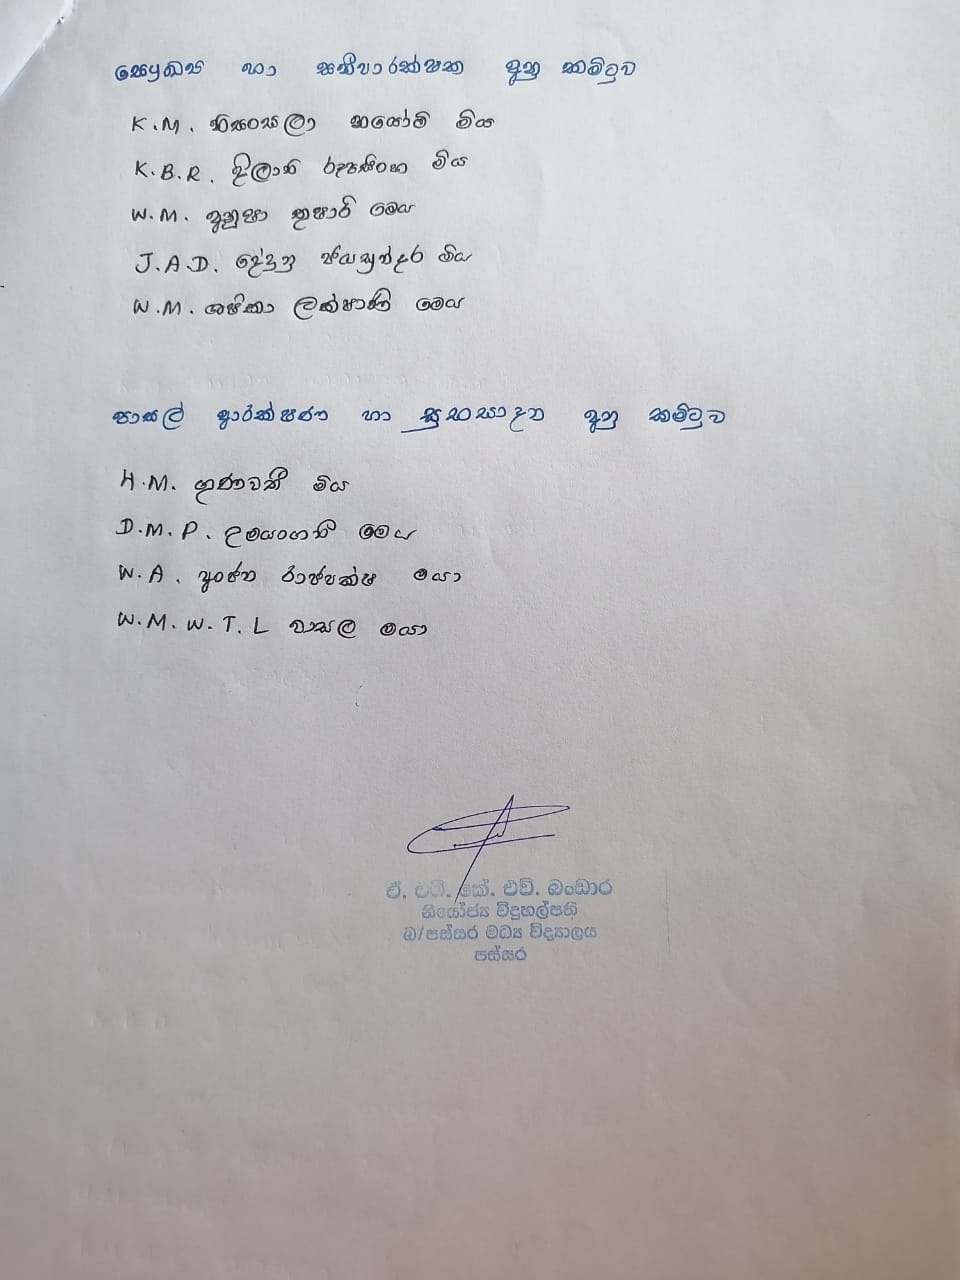 සෞඛ්‍ය හා සනීපාරක්ෂක අනු කමිටුව
K.M. නිසංසලා නයෝමි මිය
K.B.R. දිලානි රූපසිංහ මිය
W.M. අනූෂා තුෂාරි මෙය
J.A.D. දේදුනු ජයසුන්දර මිය
W.M. ශෂිකා ලක්ෂානි මෙය
පාසල් ආරක්ෂණ හා සුභසාදන අනු කමිටුව
H.M. ගුණවතී මිය
D.M.P. උමයංගනී මෙය
W.A. අංජන රාජපක්ෂ මයා
W.M.W.T.L වාසල මයා
ඒ. එම්. කේ. එච්. බංඩාර
නියෝජ්‍ය විදුහල්පති
බ/පස්සර මධ්‍ය විද්‍යාලය
පස්සර